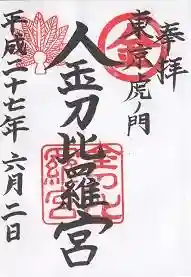 奉拝
東京虎ノ門
金刀比羅宮
平成二十七年六月二日